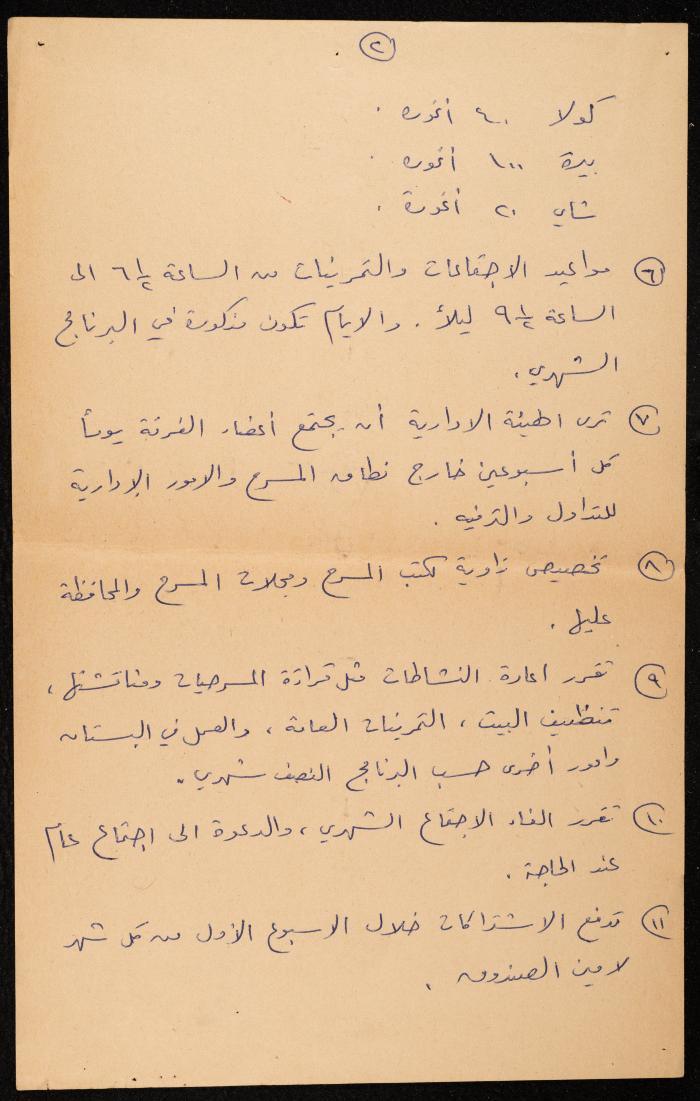 ٢
كولا ٤٠ أغورة .
بيرة ١٠٠ أغورة .
شاي ٢٠ أغورة .
٦ مواعيد الاجتماعات والتمرينات من الساعة ٦ ١/٢ الى
الساعة ٩ ١/٢ ليلاً . والايام تكون مذكورة في البرنامج
الشهري .
٧ ترى الهيئة الادارية أن يجتمع أعضاء الفرقة يوماً
كل أسبوعين خارج نطاق المسرح والامور الإدارية
للتداول والترفيه .
٨ تخصيص زاوية لكتب المسرح ومجلات المسرح والمحافظة
عليها .
٩ تقرر اعادة النشاطات مثل قراءة المسرحيات ومناقشتها ،
تنظيف البيت ، التمرينات العامة ، والعمل في البستان
وامور أخرى حسب البرنامج النصف شهري .
١٠ تقرر الغاء الاجتماع الشهري ، والدعوة الى اجتماع عام
عند الحاجة .
١١ تدفع الاشتراكات خلال الاسبوع الأول من كل شهر
لامين الصندوق .